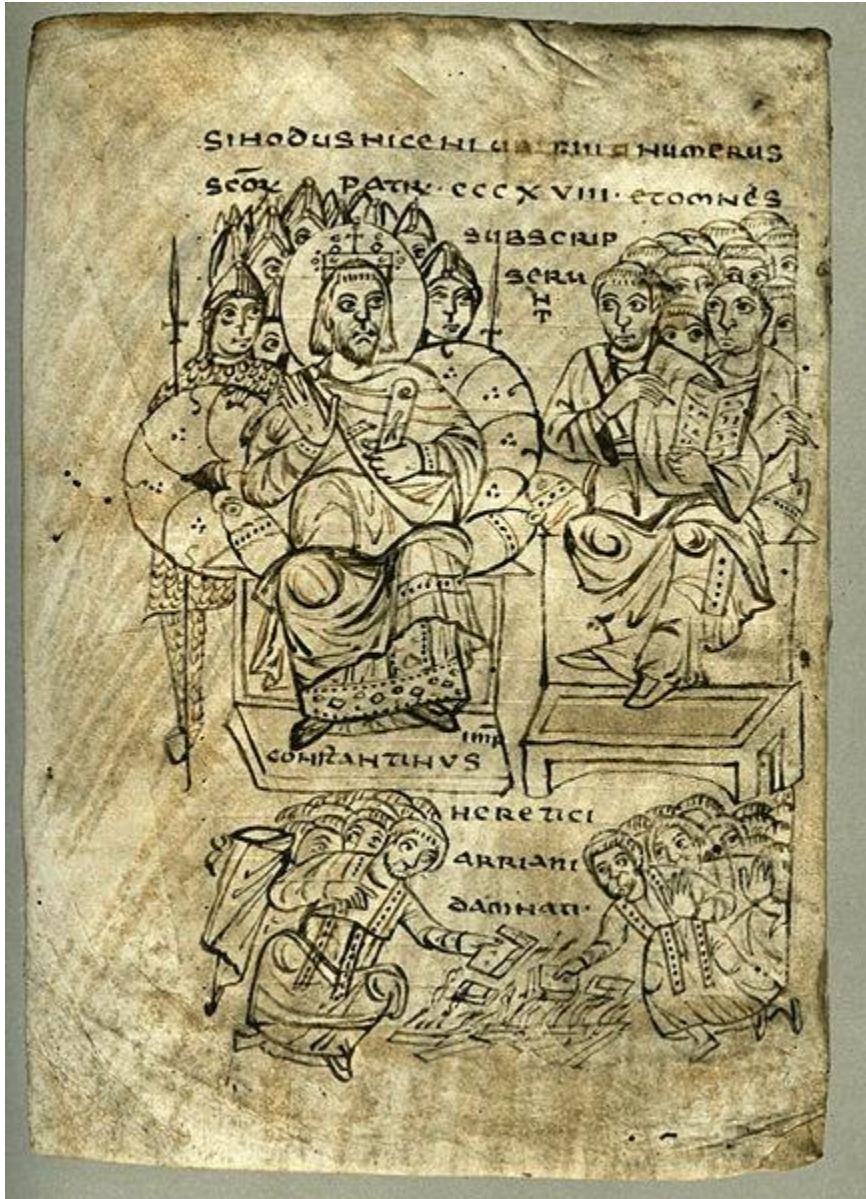 SINODUS NICENI NUMERUS
SCŌR PATR · CCCXVIII · ET OMNES
SUBSCRIP
SERU
N
T
IMP̄
CONSTANTINVS
HERETICI
ARRIANI
DAMNATI ·